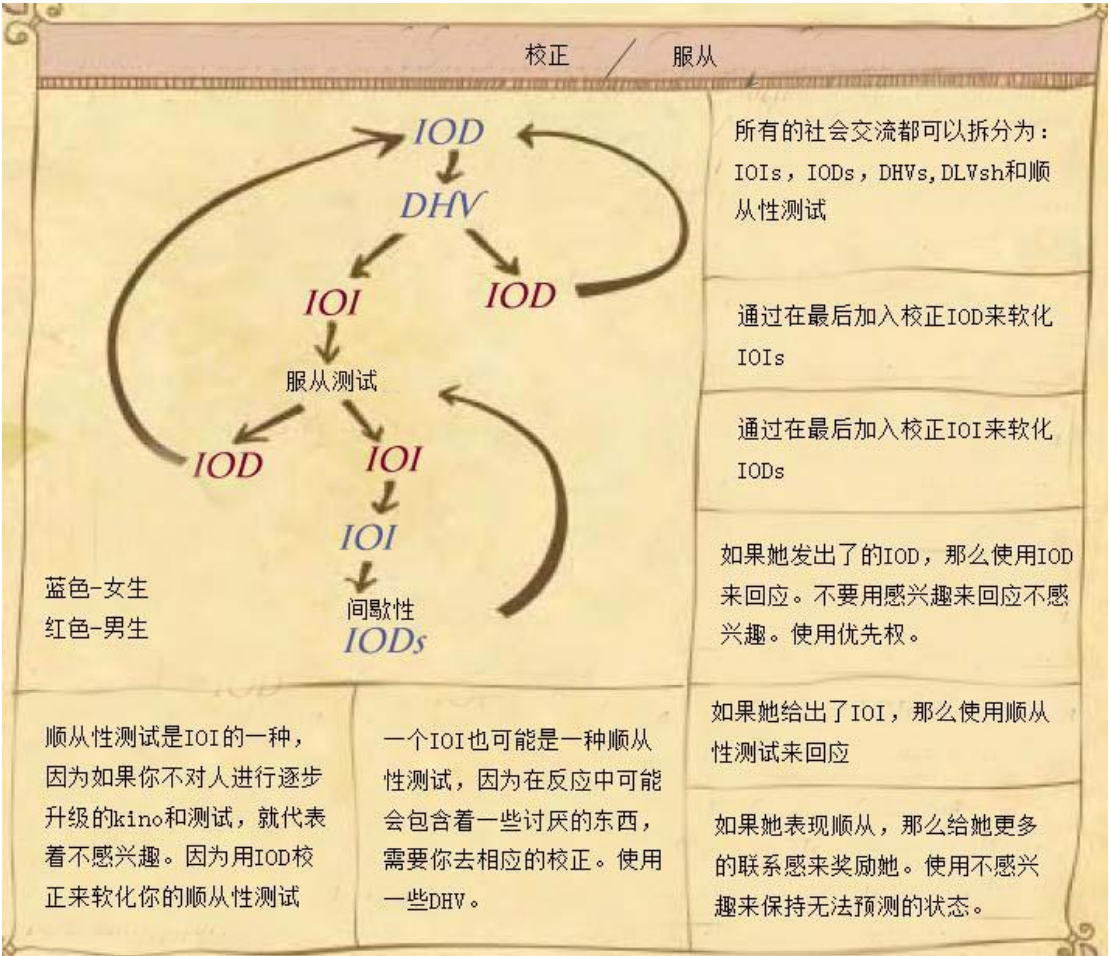 校正 / 服从
IOD
DHV
IOI
IOD
服从测试
IOD
IOI
IOI
间歇性
IODs
蓝色-女生
红色-男生
所有的社会交流都可以拆分为：
IOIs，IODs，DHVs,DLVsh和顺
从性测试
通过在最后加入校正IOD来软化
IOIs
通过在最后加入校正IOI来软化
IODs
如果她发出了的IOD，那么使用IOD
来回应。不要用感兴趣来回应不感
兴趣。使用优先权。
如果她给出了IOI，那么使用顺从
性测试来回应
如果她表现顺从，那么给她更多
的联系感来奖励她。使用不感兴
趣来保持无法预测的状态。
顺从性测试是IOI的一种，
因为如果你不对人进行逐步
升级的kino和测试，就代表
着不感兴趣。因为用IOD校
正来软化你的顺从性测试
一个IOI也可能是一种顺从
性测试，因为在反应中可能
会包含着一些讨厌的东西，
需要你去相应的校正。使用
一些DHV。